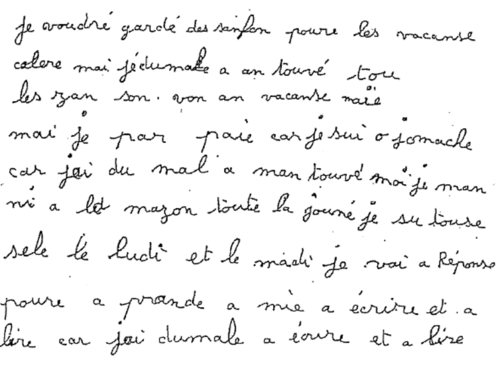 je voudré gardé des sanfon poure les vacanse
calere mai jédumale a an touvé tou
les zan son von an vacanse maïe
mai je par paie car je sui o jomache
car jai du mal a man touvé moi je man
ni a la mazon toute la jouné je su touse
sele le ludi et le madi je vai a Réponse
poure a prande a mie a écrire et a
lire car jai dumale a écrire et a lire